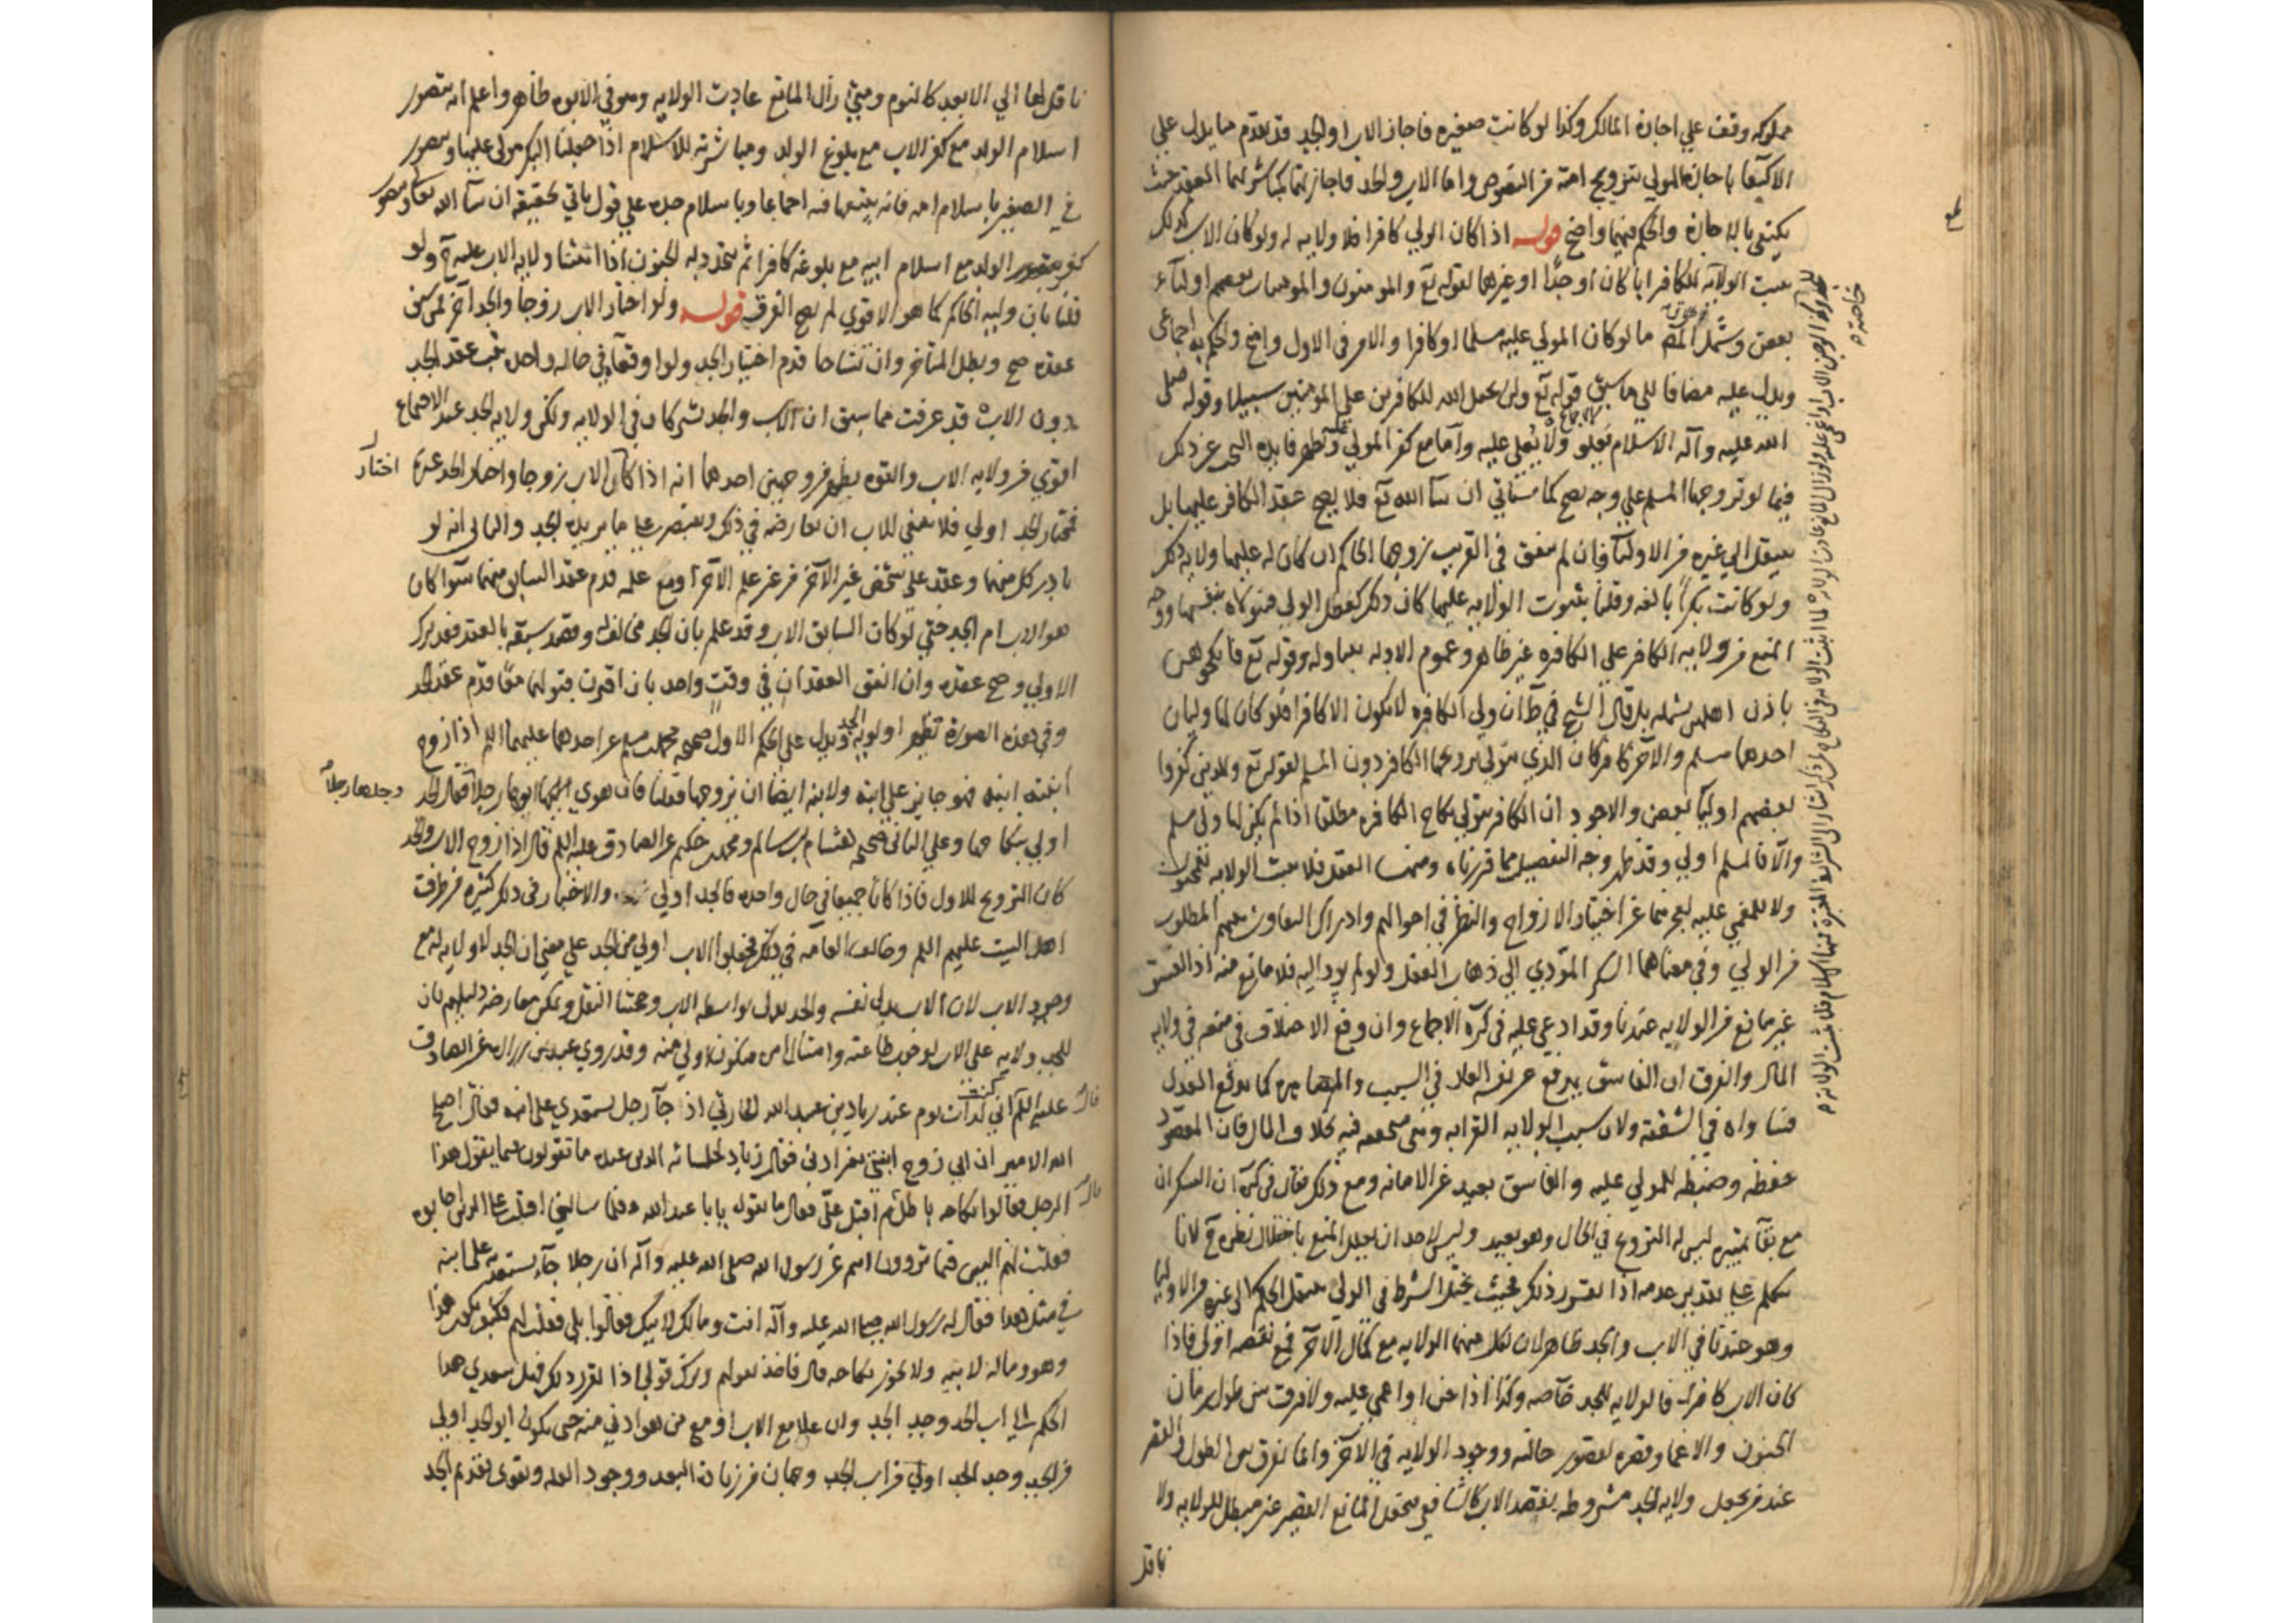 مملوكه وقف علي اجازة المالك وكذا لو كانت صغيره فاجاز الاب او الجد قد تقدم ما يدل علي
الاكتفا باجازة المولي بتزويج امته من النصوص واما الاب والجد فاجازتهما كمباشرتهما العقد حيث
يكتفي بالاجازة والحكم فيهما واضح قوله اذا كان الولي كافرا فلا ولايه له ولو كان الاب كذلك
الولايه للكافر ابا كان او جدا او غيرهما لقوله تع والمومنون والمومنات بعضهم اوليآء
بعض وشمل ما لو كان المولي عليه مسلما او كافرا والامر في الاول واضح والحكم به اجماعي
ويدل عليه مضافا الي ما سبق قوله تع ولن يجعل الله للكافرين علي المومنين سبيلا وقوله صلي
الله عليه وآله الاسلام يعلو ولا يعلي عليه وأما مع كفر المولي عليه فتظهر فايدة النهي عن ذلك
فيما لو تزوجها المسلم علي وجه يصح كما ستاتي ان شآ الله تع فلا يصح عقد الكافر عليها بل
ينتقل الي غيره من الاوليآ فان لم يتفق في القريب زوجها الحاكم ان كان له عليها ولايه ذلك
ولو كانت بكرا بالغه وقلنا بثبوت الولايه عليها كان ذلك كعضل الولي فتتولاه بنفسها ووجه
المنع من ولايه الكافر علي الكافره غير ظاهر وعموم الادله يتناوله وقوله تع فانكحوهن
باذن اهلهن يشمله بل قال الشيخ في ط ان ولي الكافره لا يكون الا كافرا فلو كان لها وليان
احدهما مسلم والآخر كافر كان الذي يتولي تزويجها الكافر دون المسلم لقوله تع والذين كفروا
بعضهم اوليآ بعض والاجود ان الكافر يتولي نكاح الكافره مطلقا اذا لم يكن لها ولي مسلم
والا فالمسلم اولي وقد ظهر وجه التفصيل مما قررناه ومنها العقل فلا تثبت الولايه للمجنون
ولا للمغمي عليه لعجزهما عن اختيار الازواج والنظر في احوالهم وادراك التفاوت بينهم المطلوب
من الولي وفي معناهما السكر المودي الي ذهاب العقل ولو لم يود اليه فلا مانع منه اذ الفسق
غير مانع من الولايه عندنا وقد ادعي عليه في كره الاجماع وان وقع الاختلاف في منعه في ولايه
المال والفرق ان الفاسق يدفع عن نفسه العار في النسب والمصاهره كما يدفع العدل
فساواه في الشفقه ولان سبب الولايه القرابه وهي متحققه فيه بخلاف المال فان المقصود
حفظه وضبطه للمولي عليه والفاسق بعيد عن الامانه ومع ذلك فقال في كره ان السكران
مع بقآ تمييزه ليس له التزويج في الحال وهو بعيد وليس لاحد ان يعلل المنع باختلال نظره ح لانا
نتكلم علي تقدير عدمه اذا تقرر ذلك فحيث يختل الشرط في الولي ينتقل الحكم الي غيره من الاوليا
وهو عندنا في الاب والجد ظاهر لان لكل منهما الولايه مع كمال الآخر فمع نقصه اولي فاذا
كان الاب كافرا فالولايه للجد خاصه وكذا اذا جن او اغمي عليه ولا فرق بين طول زمان
الجنون والاغما وقصره لقصور حالته ووجود الولايه في الآخر وانما يفرق بين الطول والقصر
عند من يجعل ولايه الجد مشروطه بفقد الاب كالشافعي فيجعل المانع القصير غير مبطل للولايه ولا
ناقل
ناقل لها الي الابعد كالنوم ومتي زال المانع عادت الولايه وهو في الابوه ظاهر واعلم انه يتصور
اسلام الولد مع كفر الاب مع بلوغ الولد ومباشرته للاسلام اذا جعلنا البكر مولي عليها ويتصور
في الصغير باسلام امه فانه يتبعها فيه اجماعا وباسلام جده علي قول ياتي تحقيقه ان شآ الله تعالي ويتصور
كفر الولد مع اسلام ابيه مع بلوغه كافرا ثم تجدد له الجنون اذا اثبتنا ولايه الاب عليه ح ولو
قلنا بان وليه الحاكم كما هو الاقوي لم يصح الفرق قوله ولو اختار الاب زوجا والجد آخر فمن سبق
عقده صح وبطل المتاخر وان تشاحا قدم اختيار الجد ولو اوقعاه في حاله واحده ثبت عقد الجد
دون الاب قد عرفت مما سبق ان الاب والجد شريكان في الولايه ولكن ولايه الجد عند الاجتماع
اقوي من ولايه الاب والقوه تظهر من وجهين احدهما انه اذا كان الاب زوجا واختار الجد غيره
اختار
فمختار الجد اولي فلا ينبغي للاب ان يعارضه في ذلك ويقتصر علي ما يريده الجد والثاني انه لو
بادر كل منهما وعقد علي شخص غير الآخر من غير علم الآخر او مع علمه قدم عقد السابق منهما سوا كان
هو الاب ام الجد حتي لو كان السابق الاب وقد علم بان الجد مخالف له وقصد سبقه بالعقد فقد ترك
الاولي وصح عقده وان اتفق العقدان في وقت واحد بان اقترن قبولهما معا قدم عقد الجد
وفي هذه الصوره تظهر اولويه الجد ويدل علي الحكم الاول صحيحه محمد بن مسلم عن احدهما عليهما السلم اذا زوج
ابنته ابنه فهو جايز علي ابنه ولابنه ايضا ان يزوجها فقلت فان هوي ابوها رجلا فقال الجد
وجدها رجلا
اولي بنكاحها وعلي الثاني صحيحه هشام بن سالم ومحمد بن حكيم عن الصادق عليه السلم قال اذا زوج الاب والجد
كان التزويج للاول فاذا كانا جميعا في حال واحده فالجد اولي والاخبار في ذلك كثيره من طرق
اهل البيت عليهم السلم وخالف العامه في ذلك فجعلوا الاب اولي من الجد علي معني ان الجد لا ولايه له مع
وجود الاب لان الاب يدلي بنفسه والجد يدلي بواسطه الاب وحجتنا النقل ويمكن معارضه دليلهم بان
للجد ولايه علي الاب لوجوب طاعته وامتثال امره فيكون اولي منه وقد روي عبيد بن زراره عن الصادق
عليه السلم قال اني كنت يوم عند زياد بن عبيد الله الحارثي اذ جآ رجل يستعدي علي ابيه فقال اصلح
الله الامير ان ابي زوج ابنتي بغير اذني فقال زياد لجلسائه الذين عنده ما تقولون فيما يقول هذا
الرجل فقالوا نكاحه باطل ثم اقبل علي فقال ما تقول يابا عبد الله فلما سالني اقبلت علي الذين اجابوه
فقلت لهم اليس فيما تروون انتم عن رسول الله صلي الله عليه وآله ان رجلا جآ يستعديه علي ابيه
في مثل هذا فقال له رسول الله صلي الله عليه وآله انت ومالك لابيك فقالوا بلي فقلت لهم فكيف يكون هذا
وهو وماله لابيه ولا يجوز نكاحه قال فاخذ بقولهم وترك قولي اذا تقرر ذلك فهل يتعدي هذا
الحكم الي اب الجد وجد الجد وان علا مع الاب او مع من هو ادني منه حتي يكون ابو الجد اولي
من الجد وجد الجد اولي من اب الجد وجهان من زياده البعد ووجود العله ويقوي تقديم الجد